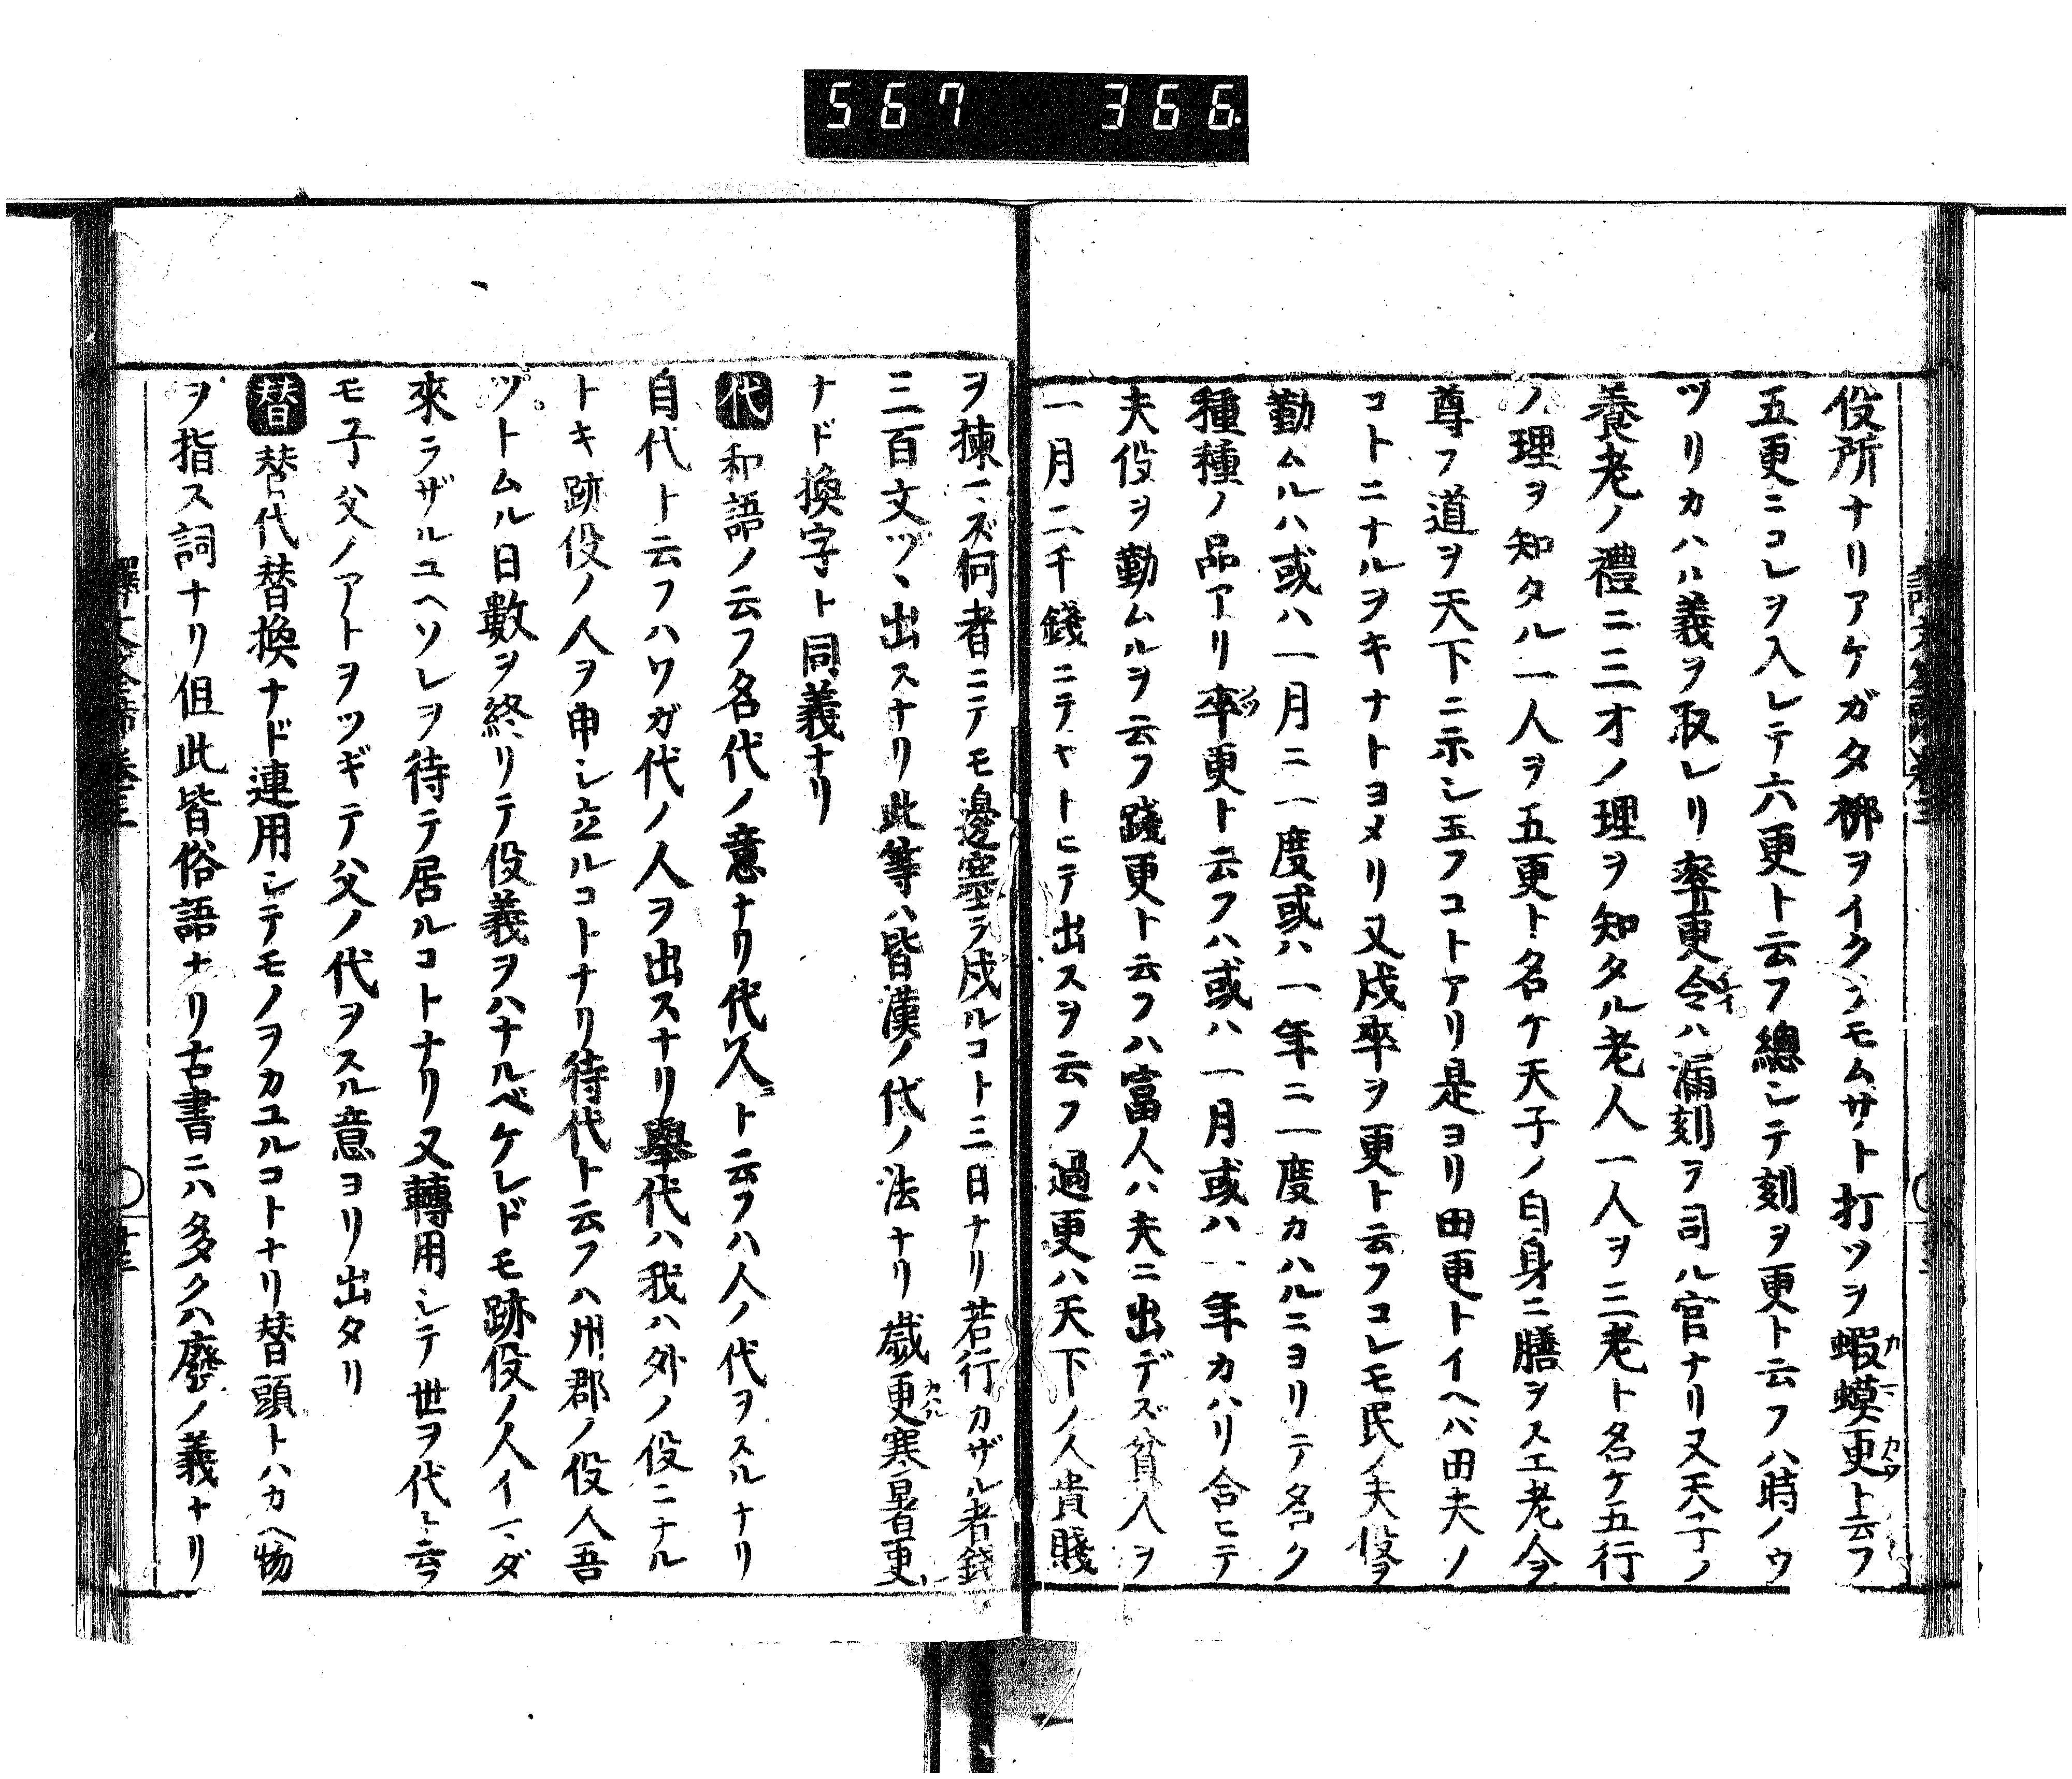 567 366.
役所ナリアケガタ梆ヲイクツモムサト打ツヲ蝦蟆更ト云フ
五更ニコレヲ入レテ六更ト云フ總シテ刻ヲ更ト云フハ時ノウ
ツリカハル義ヲ取レリ率更令ハ漏刻ヲ司ル官ナリ又天子ノ
養老ノ禮ニ三才ノ理ヲ知タル老人一人ヲ三老ト名ケ五行
ノ理ヲ知タル一人ヲ五更ト名ケ天子ノ自身ニ膳ヲスエ老人ヲ
尊フ道ヲ天下ニ示シ玉フコトアリ是ヨリ田更トイヘバ田夫ノ
コトニナルヲキナトヨメリ又戍卒ヲ更ト云フコレモ民ノ夫役ヲ
勤ムルハ或ハ一月ニ一度或ハ一年ニ一度カハルニヨリテ名ク
種種ノ品アリ卒更ト云フハ或ハ一月或ハ一年カハリ合ヒテ
夫役ヲ勤ムルヲ云フ踐更ト云フハ富人ハ夫ニ出デズ貧人ヲ
一月二千錢ニテヤトヒテ出スヲ云フ過更ハ天下ノ人貴賤
ヲ揀バズ何者ニテモ邊塞ヲ戍ルコト三日ナリ若行カザル者錢
三百文ヅヽ出スナリ此等ハ皆漢ノ代ノ法ナリ歲更寒暑更
ナド換字ト同義ナリ
代 和語ノ云フ名代ノ意ナリ代人ト云フハ人ノ代ヲスルナリ
自代ト云フハワガ代ノ人ヲ出スナリ擧代ハ我ハ外ノ役ニナル
トキ跡役ノ人ヲ申シ立ルコトナリ待代ト云フハ州郡ノ役人吾
ツトムル日數ヲ終リテ役義ヲハナルベケレドモ跡役ノ人イマダ
來ラザルユヘソレヲ待テ居ルコトナリ又轉用シテ世ヲ代ト云フ
モ子父ノアトヲツギテ父ノ代ヲスル意ヨリ出タリ
替 替代替換ナド連用シテモノヲカユルコトナリ替頭トハカヘ物
ヲ指ス詞ナリ但此皆俗語ナリ古書ニハ多クハ廢ノ義ナリ